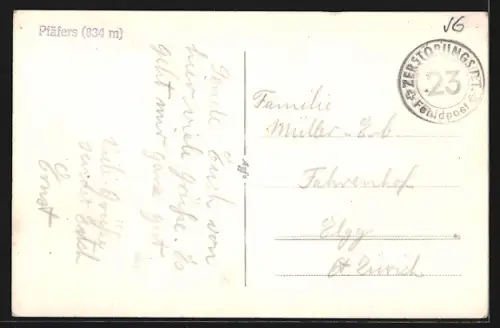 Pfäfers (834 m)
Sende Euch von
hier viele Grüsse. Es
geht mir ganz gut.
Viele Grüsse
sendet Euch
Ernst
56
ZERSTÖRUNGS DET.
23
Feldpost
Familie
Müller-Erb.
Fahrenhof
Elgg
Kt Zürich